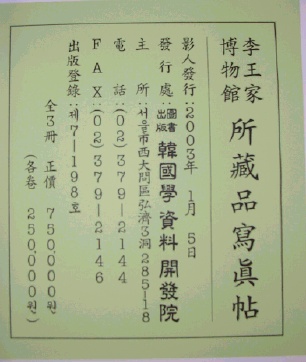 李王家博物館 所藏品寫眞帖
影人發行：2003年 1月 5日
發行處：圖書出版 韓國學資料開發院
主所：서울市西大門區弘濟3洞285-18
電話：(02)379-2144
FAX：(02)379-2146
出版登錄：제7-198호
全3冊 正價 750,000원
(各卷 250,000원)